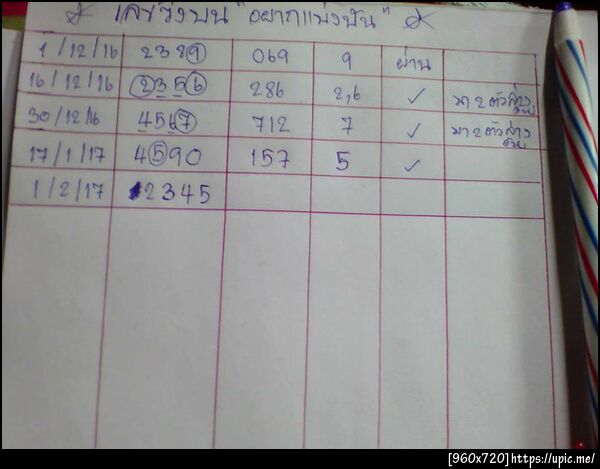 ☆ เลขวิ่งบน "อยากแบ่งปัน" ☆
1/12/16 2389 069 9 ผ่าน
16/12/16 2356 286 2,6 ✓ มา 2 ตัวล่างด้วย
30/12/16 4567 712 7 ✓ มา 2 ตัวล่างด้วย
17/1/17 4590 157 5 ✓
1/2/17 2345
[960x720]https://upic.me/